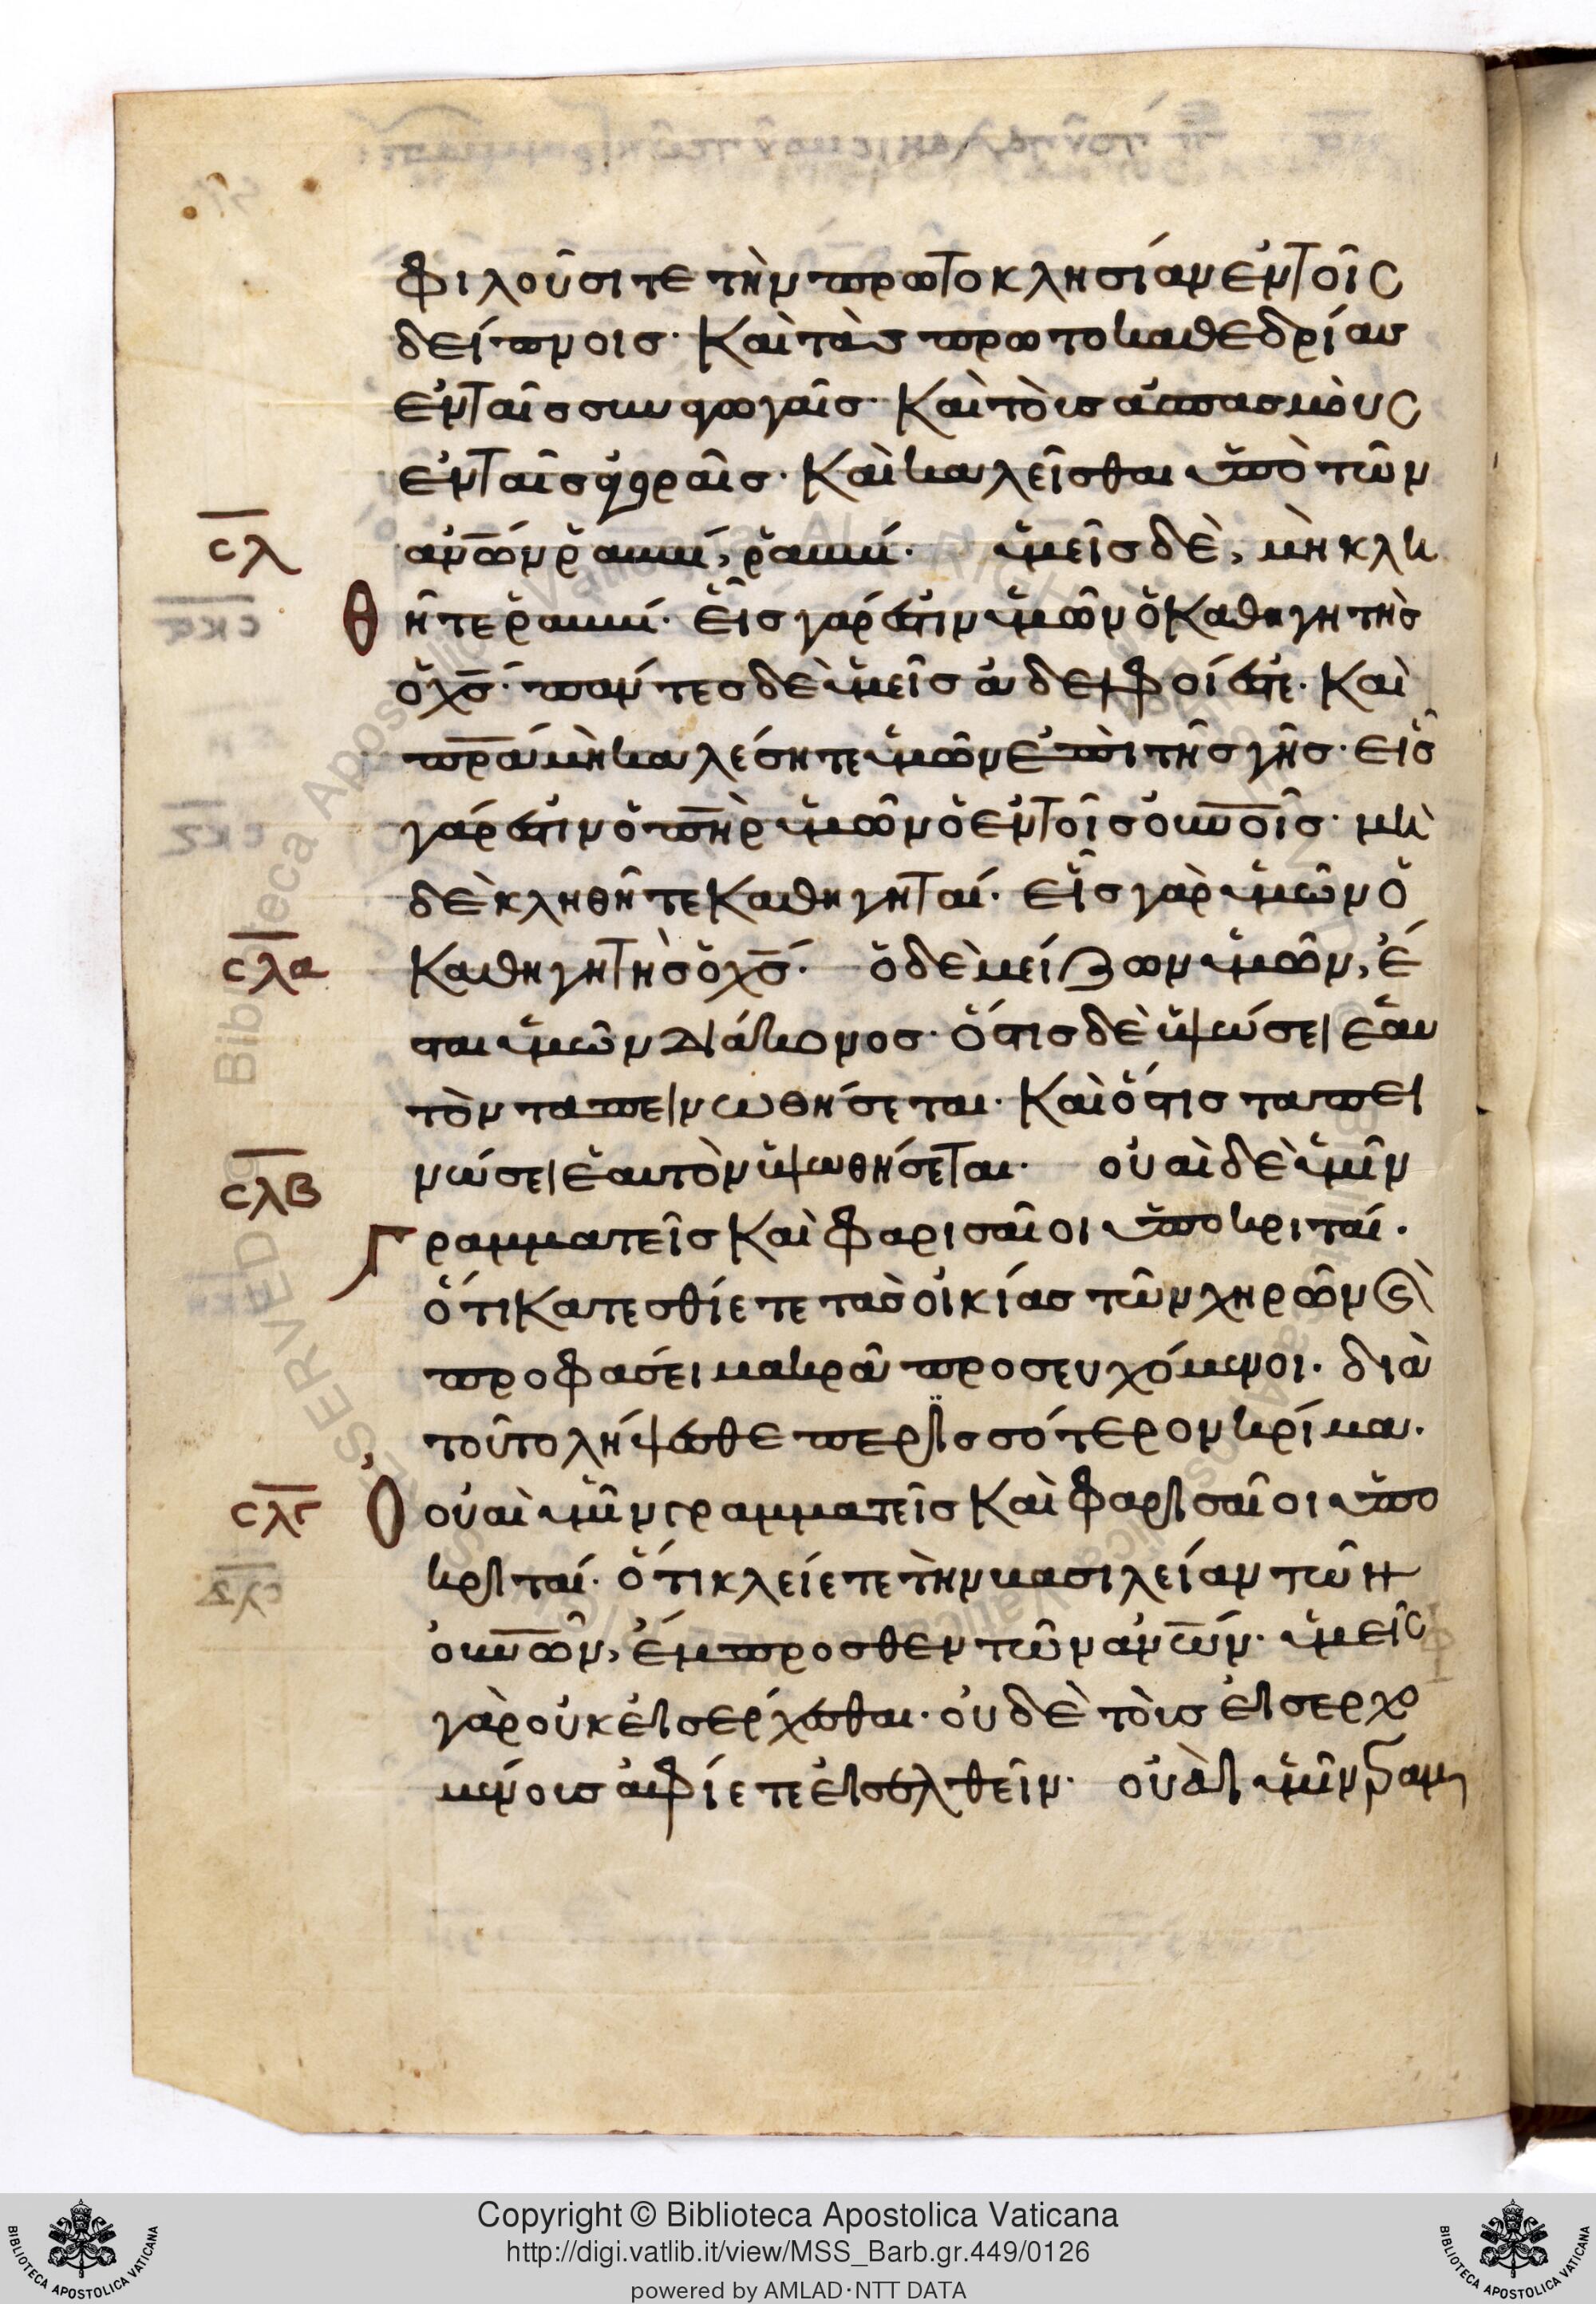 φιλοῦσι τε τὴν πρωτοκλησίαν ἐν τοῖς
δείπνοις· Καὶ τὰς πρωτοκαθεδρίας
ἐν ταῖς συναγωγαῖς· Καὶ τοὺς ἀσπασμοὺς
ἐν ταῖς ἀγοραῖς· Καὶ καλεῖσθαι ὑπὸ τῶν
σλ
ἀνων ῥαββί, ῥαββί· ὑμεῖς δὲ, μὴ κλη
θῆτε ῥαββί· εἷς γάρ ἐστιν ὑμῶν ὁ Καθηγητὴς
ὁ χς· πάντες δὲ ὑμεῖς ἀδελφοί ἐστε· Καὶ
πρα μὴ καλέσητε ὑμῶν ἐπὶ τῆς γῆς· εἷς
γάρ ἐστιν ὁ πηρ ὑμῶν ὁ ἐν τοῖς οὐνοῖς· μη
δὲ κληθῆτε Καθηγηταί· εἷς γὰρ ὑμῶν ὁ
σλα
Καθηγητὴς ὁ χς· ὁ δὲ μείζων ὑμῶν, ἔ
σται ὑμῶν διάκονος· ὅστις δὲ ὑψώσει ἑαυ
τὸν ταπεινωθήσεται· Καὶ ὅστις ταπει
σλβ
νώσει ἑαυτὸν ὑψωθήσεται· οὐαὶ δὲ ὑμῖν
Γραμματεῖς Καὶ Φαρισαῖοι ὑποκριταί·
ὅτι Κατεσθίετε τὰς οἰκίας τῶν χηρῶν ϗ
προφάσει μακρᾶ προσευχόμενοι· διὰ
τοῦτο λήψεσθε περισσότερον κρίμα·
σλγ
Οὐαὶ ὑμῖν γραμματεῖς Καὶ Φαρισαῖοι ὑπο
κριταί· ὅτι κλείετε τὴν βασιλείαν τῶν
οὐνων, ἔμπροσθεν τῶν ἀνων· ὑμεῖς
γὰρ οὐκ εἰσέρχεσθαι· οὐδὲ τοὺς εἰσερχο
μένους ἀφίετε εἰσελθεῖν· οὐαὶ ὑμῖν γραμμ
Copyright © Biblioteca Apostolica Vaticana
http://digi.vatlib.it/view/MSS_Barb.gr.449/0126
powered by AMLAD·NTT DATA
BIBLIOTECA APOSTOLICA VATICANA
BIBLIOTECA APOSTOLICA VATICANA